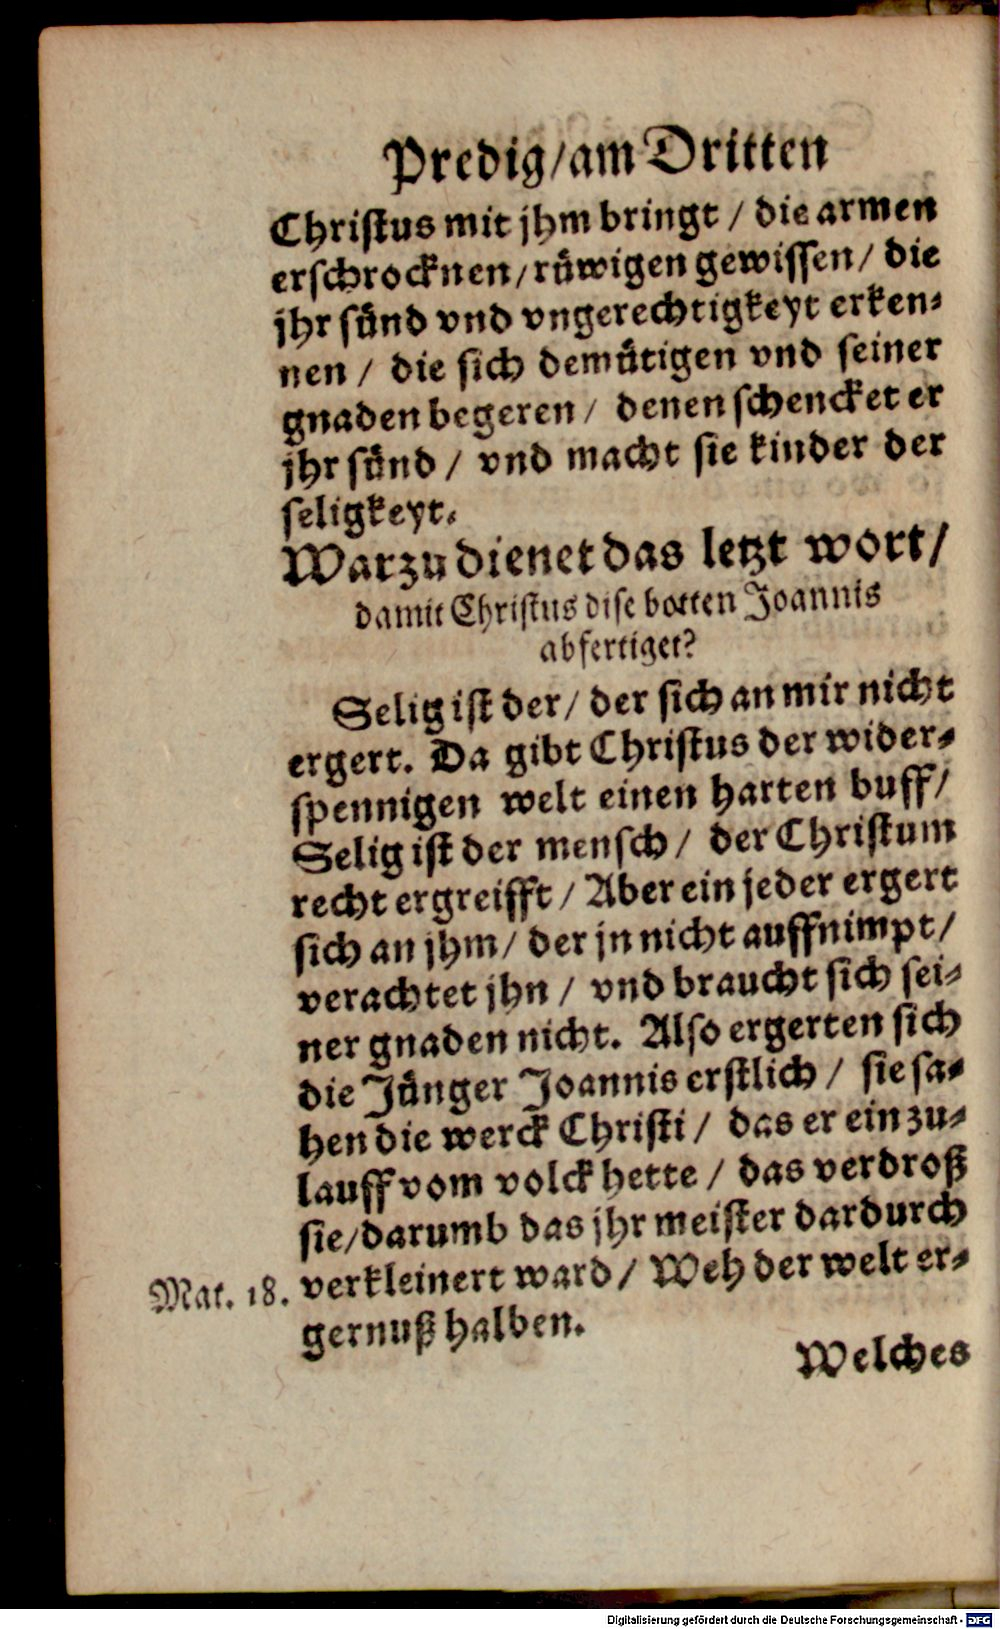 Predig/am Dritten
Christus mit jhm bringt / die armen
erschrocknen/rüwigen gewissen/ die
jhr sünd vnd vngerechtigkeyt erken-
nen / die sich demütigen vnd seiner
gnaden begeren / denen schencket er
jhr sünd / vnd macht sie kinder der
seligkeyt.
Warzu dienet das letzt wort/
damit Christus dise botten Joannis
abfertiget?
Selig ist der/ der sich an mir nicht
ergert. Da gibt Christus der wider-
spennigen welt einen harten buff/
Selig ist der mensch / der Christum
recht ergreifft / Aber ein jeder ergert
sich an jhm/ der jn nicht auffnimpt/
verachtet jhn / vnd braucht sich sei-
ner gnaden nicht. Also ergerten sich
die Jünger Joannis erstlich / sie sa-
hen die werck Christi / das er ein zu-
lauff vom volck hette / das verdroß
sie/darumb das jhr meister dardurch
Mat. 18. verkleinert ward / Weh der welt er-
gernuß halben.
Welches
Digitalisierung gefördert durch die Deutsche Forschungsgemeinschaft - DFG